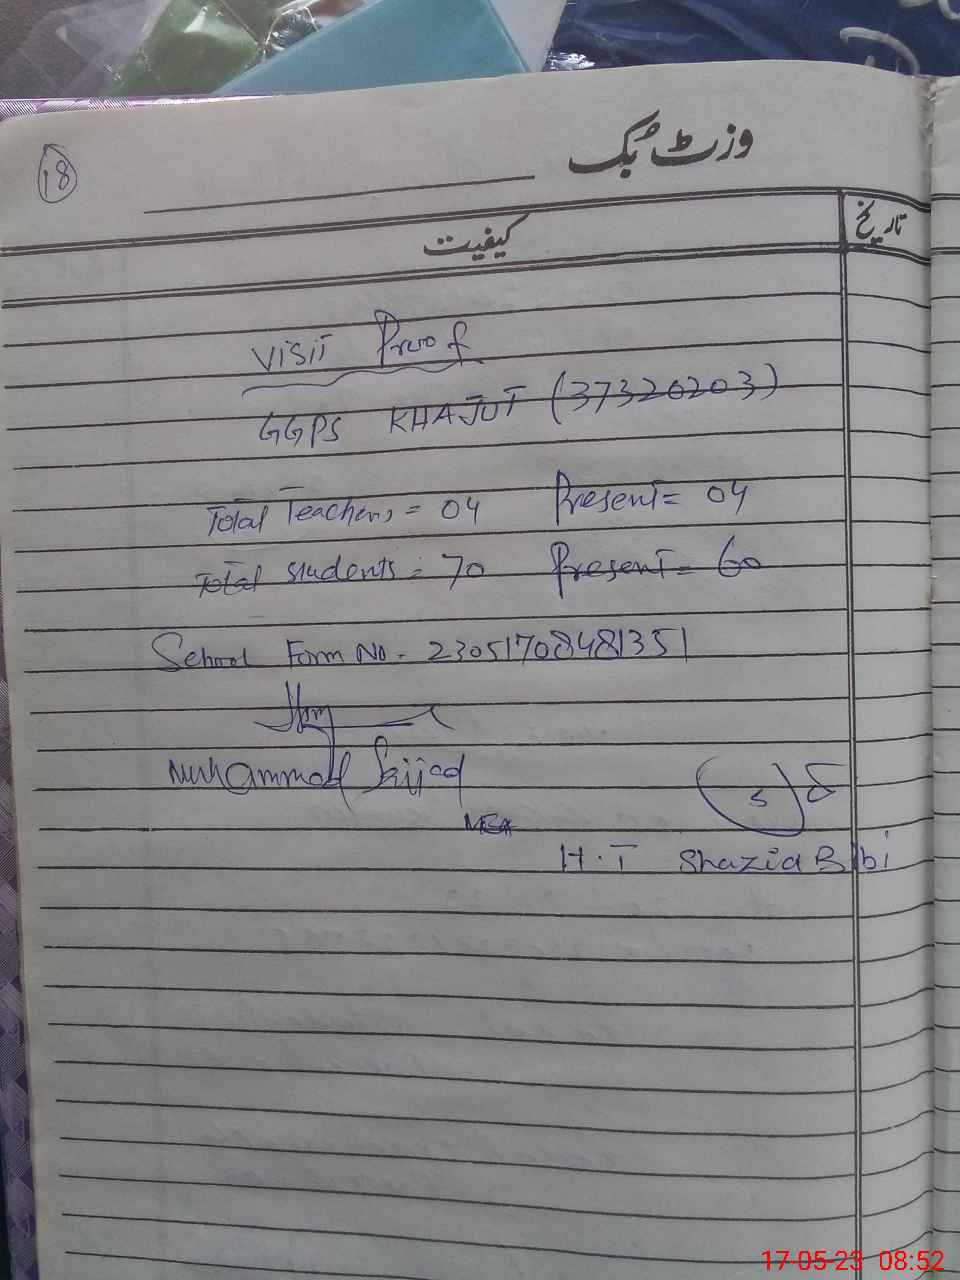 18
وزٹ بُک
کیفیت تاریخ
Visit Proof
GGPS KHAJUT (37320203)
Total Teachers = 04 Present = 04
Total students = 70 Present = 60
School Form No - 23051708481351
Muhammad Sajjad
MEA
H.T Shazia Bibi
17-05-23 08:52